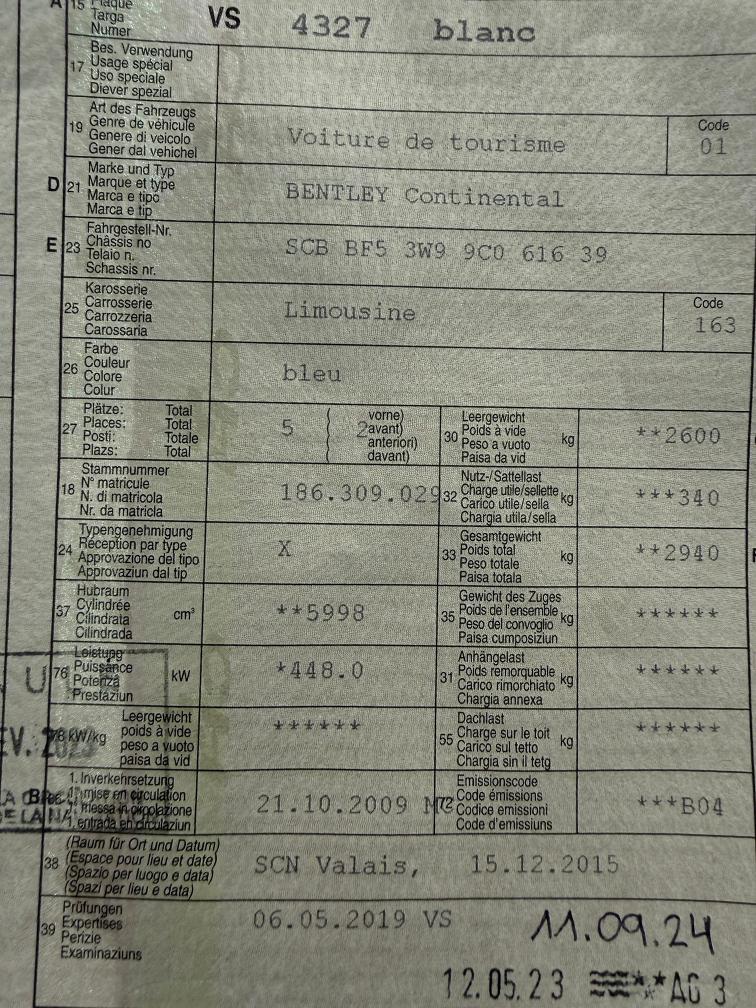 A 15 Plaque
Targa
Numer
VS 4327 blanc
17 Bes. Verwendung
Usage spécial
Uso speciale
Diever spezial
19 Art des Fahrzeugs
Genre de véhicule
Genere di veicolo
Gener dal vehichel
Voiture de tourisme
Code
01
D 21 Marke und Typ
Marque et type
Marca e tipo
Marca e tip
BENTLEY Continental
E 23 Fahrgestell-Nr.
Châssis no
Telaio n.
Schassis nr.
SCB BF5 3W9 9C0 616 39
25 Karosserie
Carrosserie
Carrozzeria
Carossaria
Limousine
Code
163
26 Farbe
Couleur
Colore
Colur
bleu
27 Plätze: Total
Places: Total
Posti: Totale
Plazs: Total
5 ( 2 vorne)
avant)
anteriori)
davant)
30 Leergewicht
Poids à vide
Peso a vuoto
Paisa da vid
kg
**2600
18 Stammnummer
N° matricule
N. di matricola
Nr. da matricla
186.309.029
32 Nutz-/Sattellast
Charge utile/sellette
Carico utile/sella
Chargia utila/sella
kg
***340
24 Typengenehmigung
Réception par type
Approvazione del tipo
Approvaziun dal tip
X
33 Gesamtgewicht
Poids total
Peso totale
Paisa totala
kg
**2940
37 Hubraum
Cylindrée
Cilindrata
Cilindrada
cm³
**5998
35 Gewicht des Zuges
Poids de l'ensemble
Peso del convoglio
Paisa cumposiziun
kg
******
76 Leistung
Puissance
Potenza
Prestaziun
kW
*448.0
31 Anhängelast
Poids remorquable
Carico rimorchiato
Chargia annexa
kg
******
78 kW/kg
Leergewicht
poids à vide
peso a vuoto
paisa da vid
******
55 Dachlast
Charge sur le toit
Carico sul tetto
Chargia sin il tetg
kg
******
1. Inverkehrsetzung
1. mise en circulation
1. messa in circolazione
1. entrada en circulaziun
21.10.2009 M
72 Emissionscode
Code émissions
Codice emissioni
Code d'emissiuns
***B04
38 (Raum für Ort und Datum)
(Espace pour lieu et date)
(Spazio per luogo e data)
(Spazi per lieu e data)
SCN Valais, 15.12.2015
39 Prüfungen
Expertises
Perizie
Examinaziuns
06.05.2019 VS
11.09.24
12.05.23 **AG 3